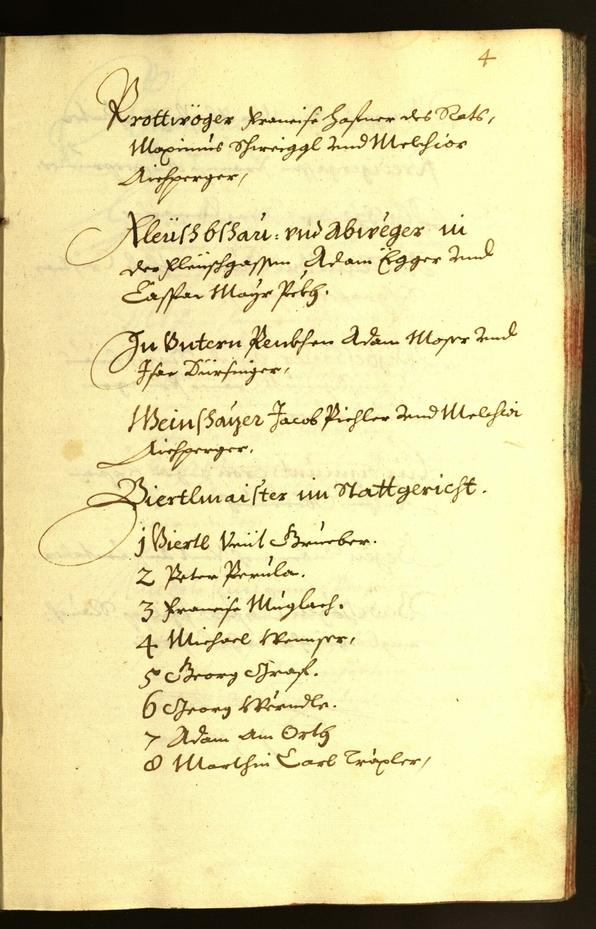 4
Prottwöger Francisc Hafner des Rats,
Maximus Schweiggl und Melchior
Aichperger,
Fleischbschau: und Abweger in
der Fleischgassen Adam Egger und
Caspar Mayr Pekh.
In Untern Penkhen Adam Moser und
Isac Dürsinger,
Weinschayer Jacob Pichler und Melchior
Aichperger.
Viertlmaister im Stattgericht.
1 Viertl Veit Grueber.
2 Peter Perula.
3 Francisc Muglach.
4 Michael Wennser,
5 Georg Graf.
6 Georg Werndle.
7 Adam Am Orth
8 Marthin Carl Trapler,